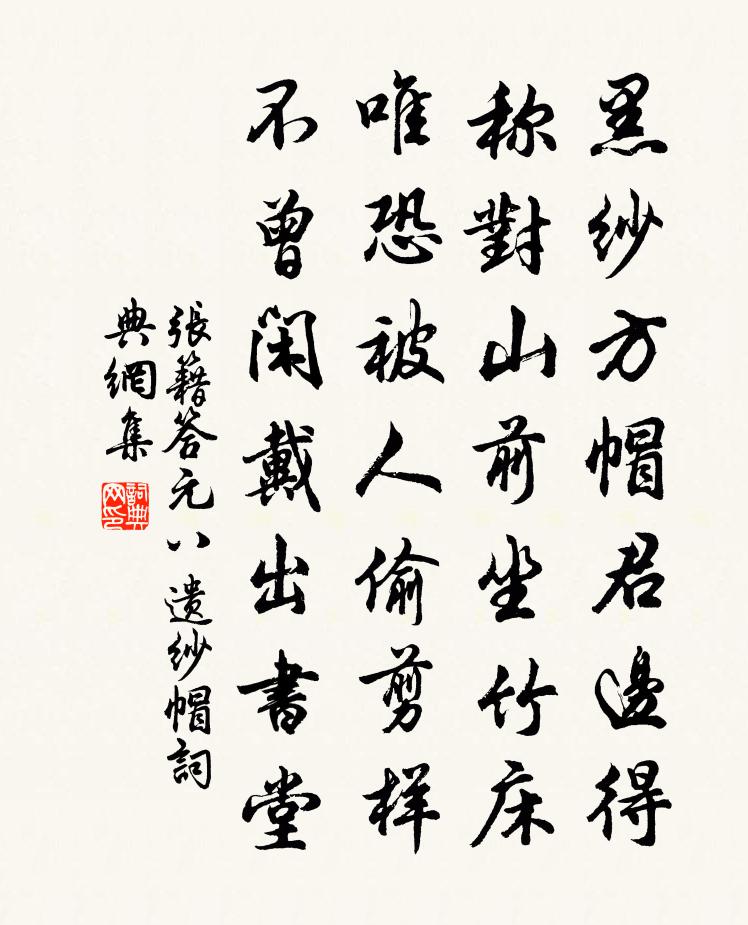 黑紗方帽君邊得
称對山前坐竹床
唯恐被人偷剪样
不曾閑戴出書堂
張籍答元八遺紗帽詞
典網集
詞典
网印